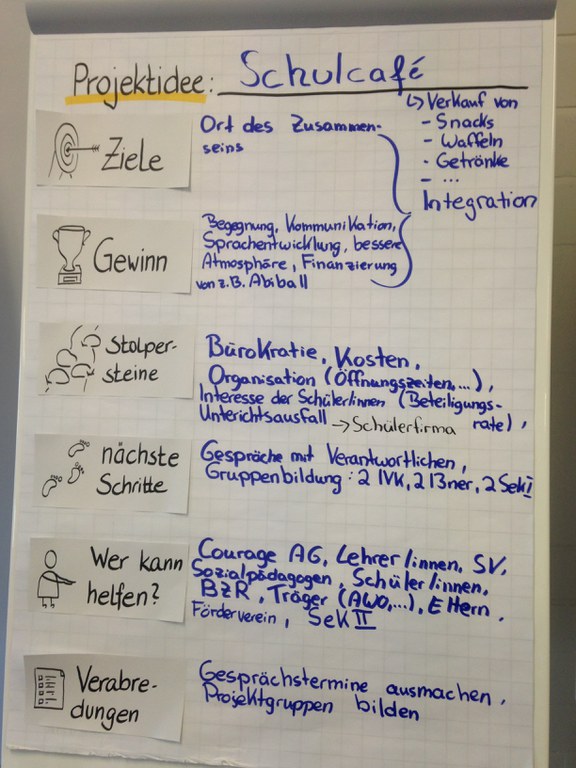 Projektidee: Schulcafé
↳ Verkauf von
- Snacks
- Waffeln
- Getränke
- ...
Integration
Ziele
Ort des Zusammen-
seins
Gewinn
Begegnung, Kommunikation,
Sprachentwicklung, bessere
Atmosphäre, Finanzierung
von z.B. Abiball
Stolper-
steine
Bürokratie, Kosten,
Organisation (Öffnungszeiten,...),
Interesse der Schüler/innen (Beteiligungs-
rate),
Unterichtsausfall → Schülerfirma
nächste
Schritte
Gespräche mit Verantwortlichen,
Gruppenbildung: 2 IVK, 2 13ner, 2 Sek I
Wer kann
helfen?
Courage AG, Lehrer/innen, SV,
Sozialpädagogen, Schüler/innen,
BzR, Träger (AWO,...), Eltern,
Förderverein, Sek II
Verabre-
dungen
Gesprächstermine ausmachen,
Projektgruppen bilden